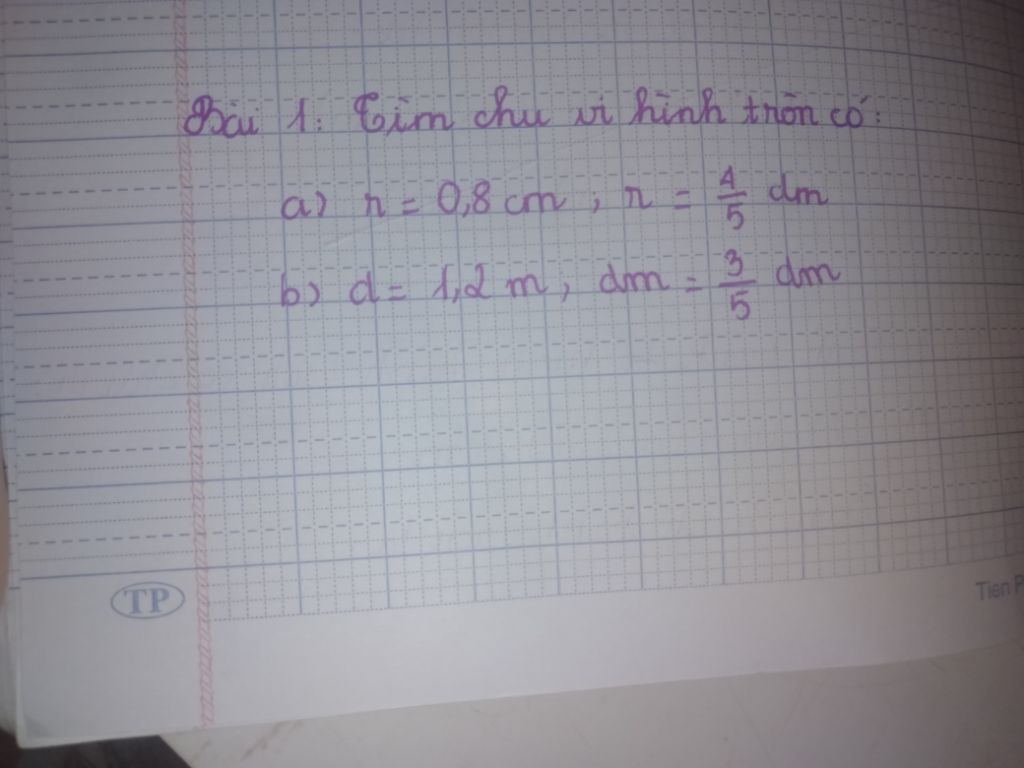 Bài 1: Tìm chu vi hình tròn có:
a) r = 0,8 cm ; r = 4/5 dm
b) d = 1,2 m ; dm = 3/5 dm
TP
Tien P